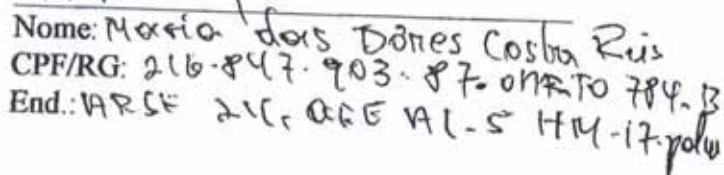 Nome: Maria das Dores Costa Reis
CPF/RG: 216.847.903.87. OAB TO 784.B
End.: ARSE 21, AL-5 HM-17.